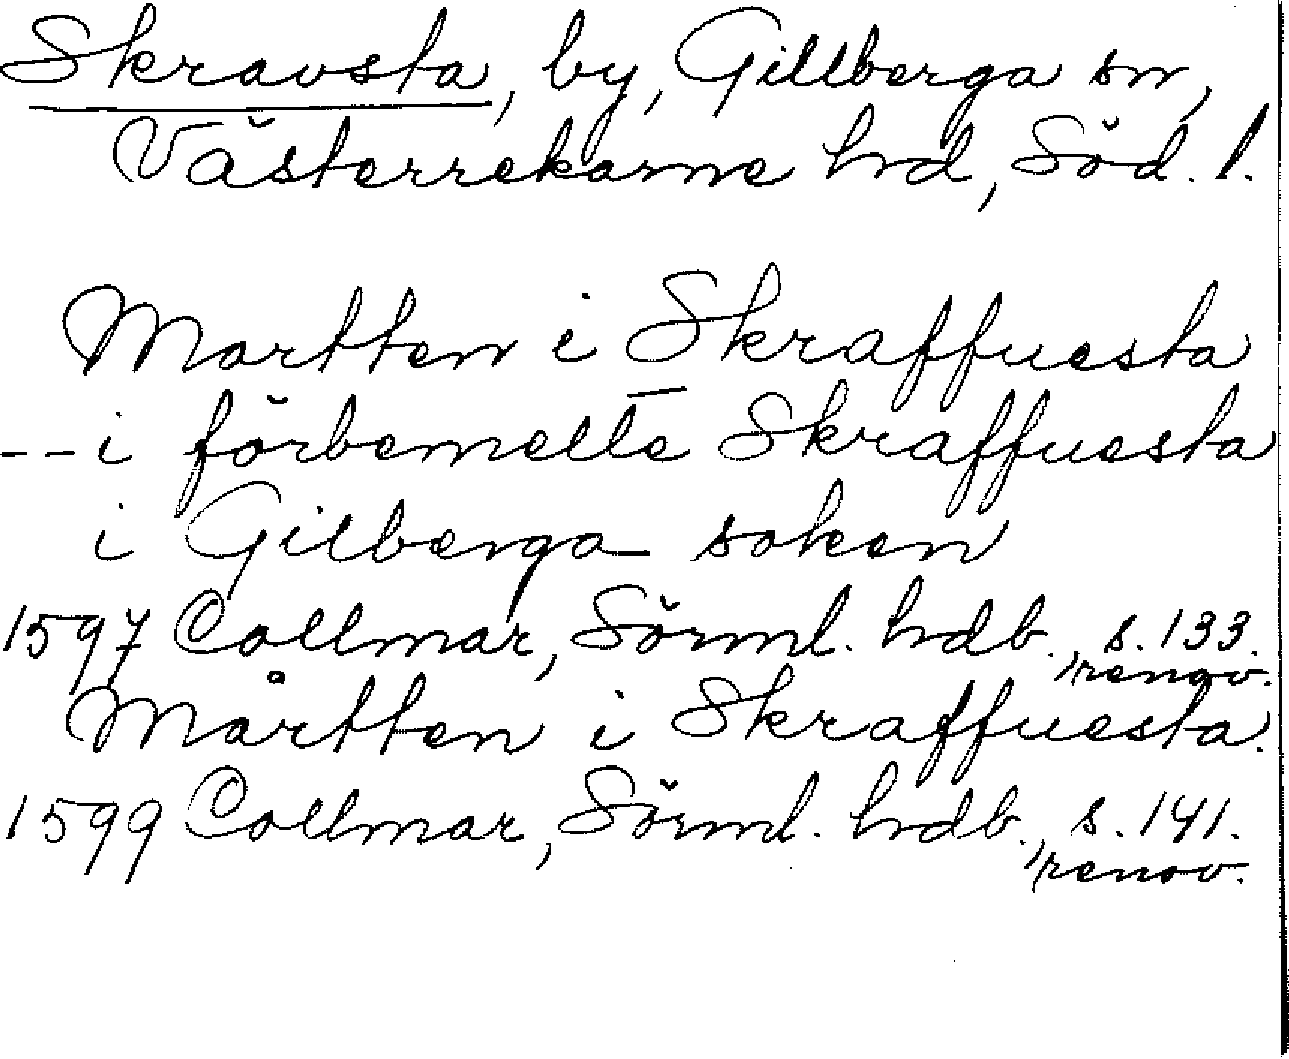 Skravsta, by, Gillberga sn,
Västerrekarne hd, Söd. l.
Martten i Skraffuesta
-- i förbemelte Skraffuesta
i Gilberga soken
1597 Collmar, Sörml. hdb., s. 133.
renov.
Mårtten i Skraffuesta.
1599 Collmar, Sörml. hdb., s. 141.
renov.